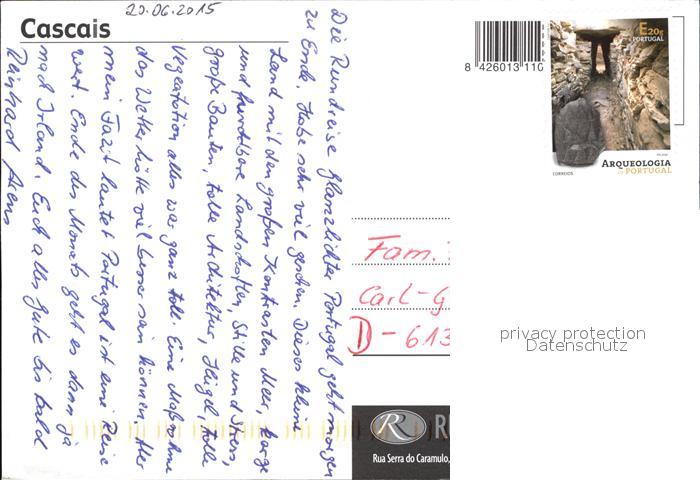 Cascais
20.06.2015
Die Rundreise Glanzlichter Portugal geht morgen
zu Ende. Habe sehr viel gesehen. Dieses kleine
Land mit den großen Kontrasten Meer, Berge
und fruchtbare Landschaften, Stille und Stress,
große Bauten, tolle Architektur, Hügel, tolle
Vegetation alles war ganz toll. Eine Maßnahme
das Wetter hätte viel besser sein können. Aber
mein Fazit lautet Portugal ist eine Reise
wert. Ende des Monats geht es dann ja
nach Irland. Euch alles Gute bis bald
Reinhard
8 426013 110
E20g
PORTUGAL
ARQUEOLOGIA
em PORTUGAL
CORREIOS
Fam.
Carl-G
D-613
privacy protection
Datenschutz
R
RU
Rua Serra do Caramulo,